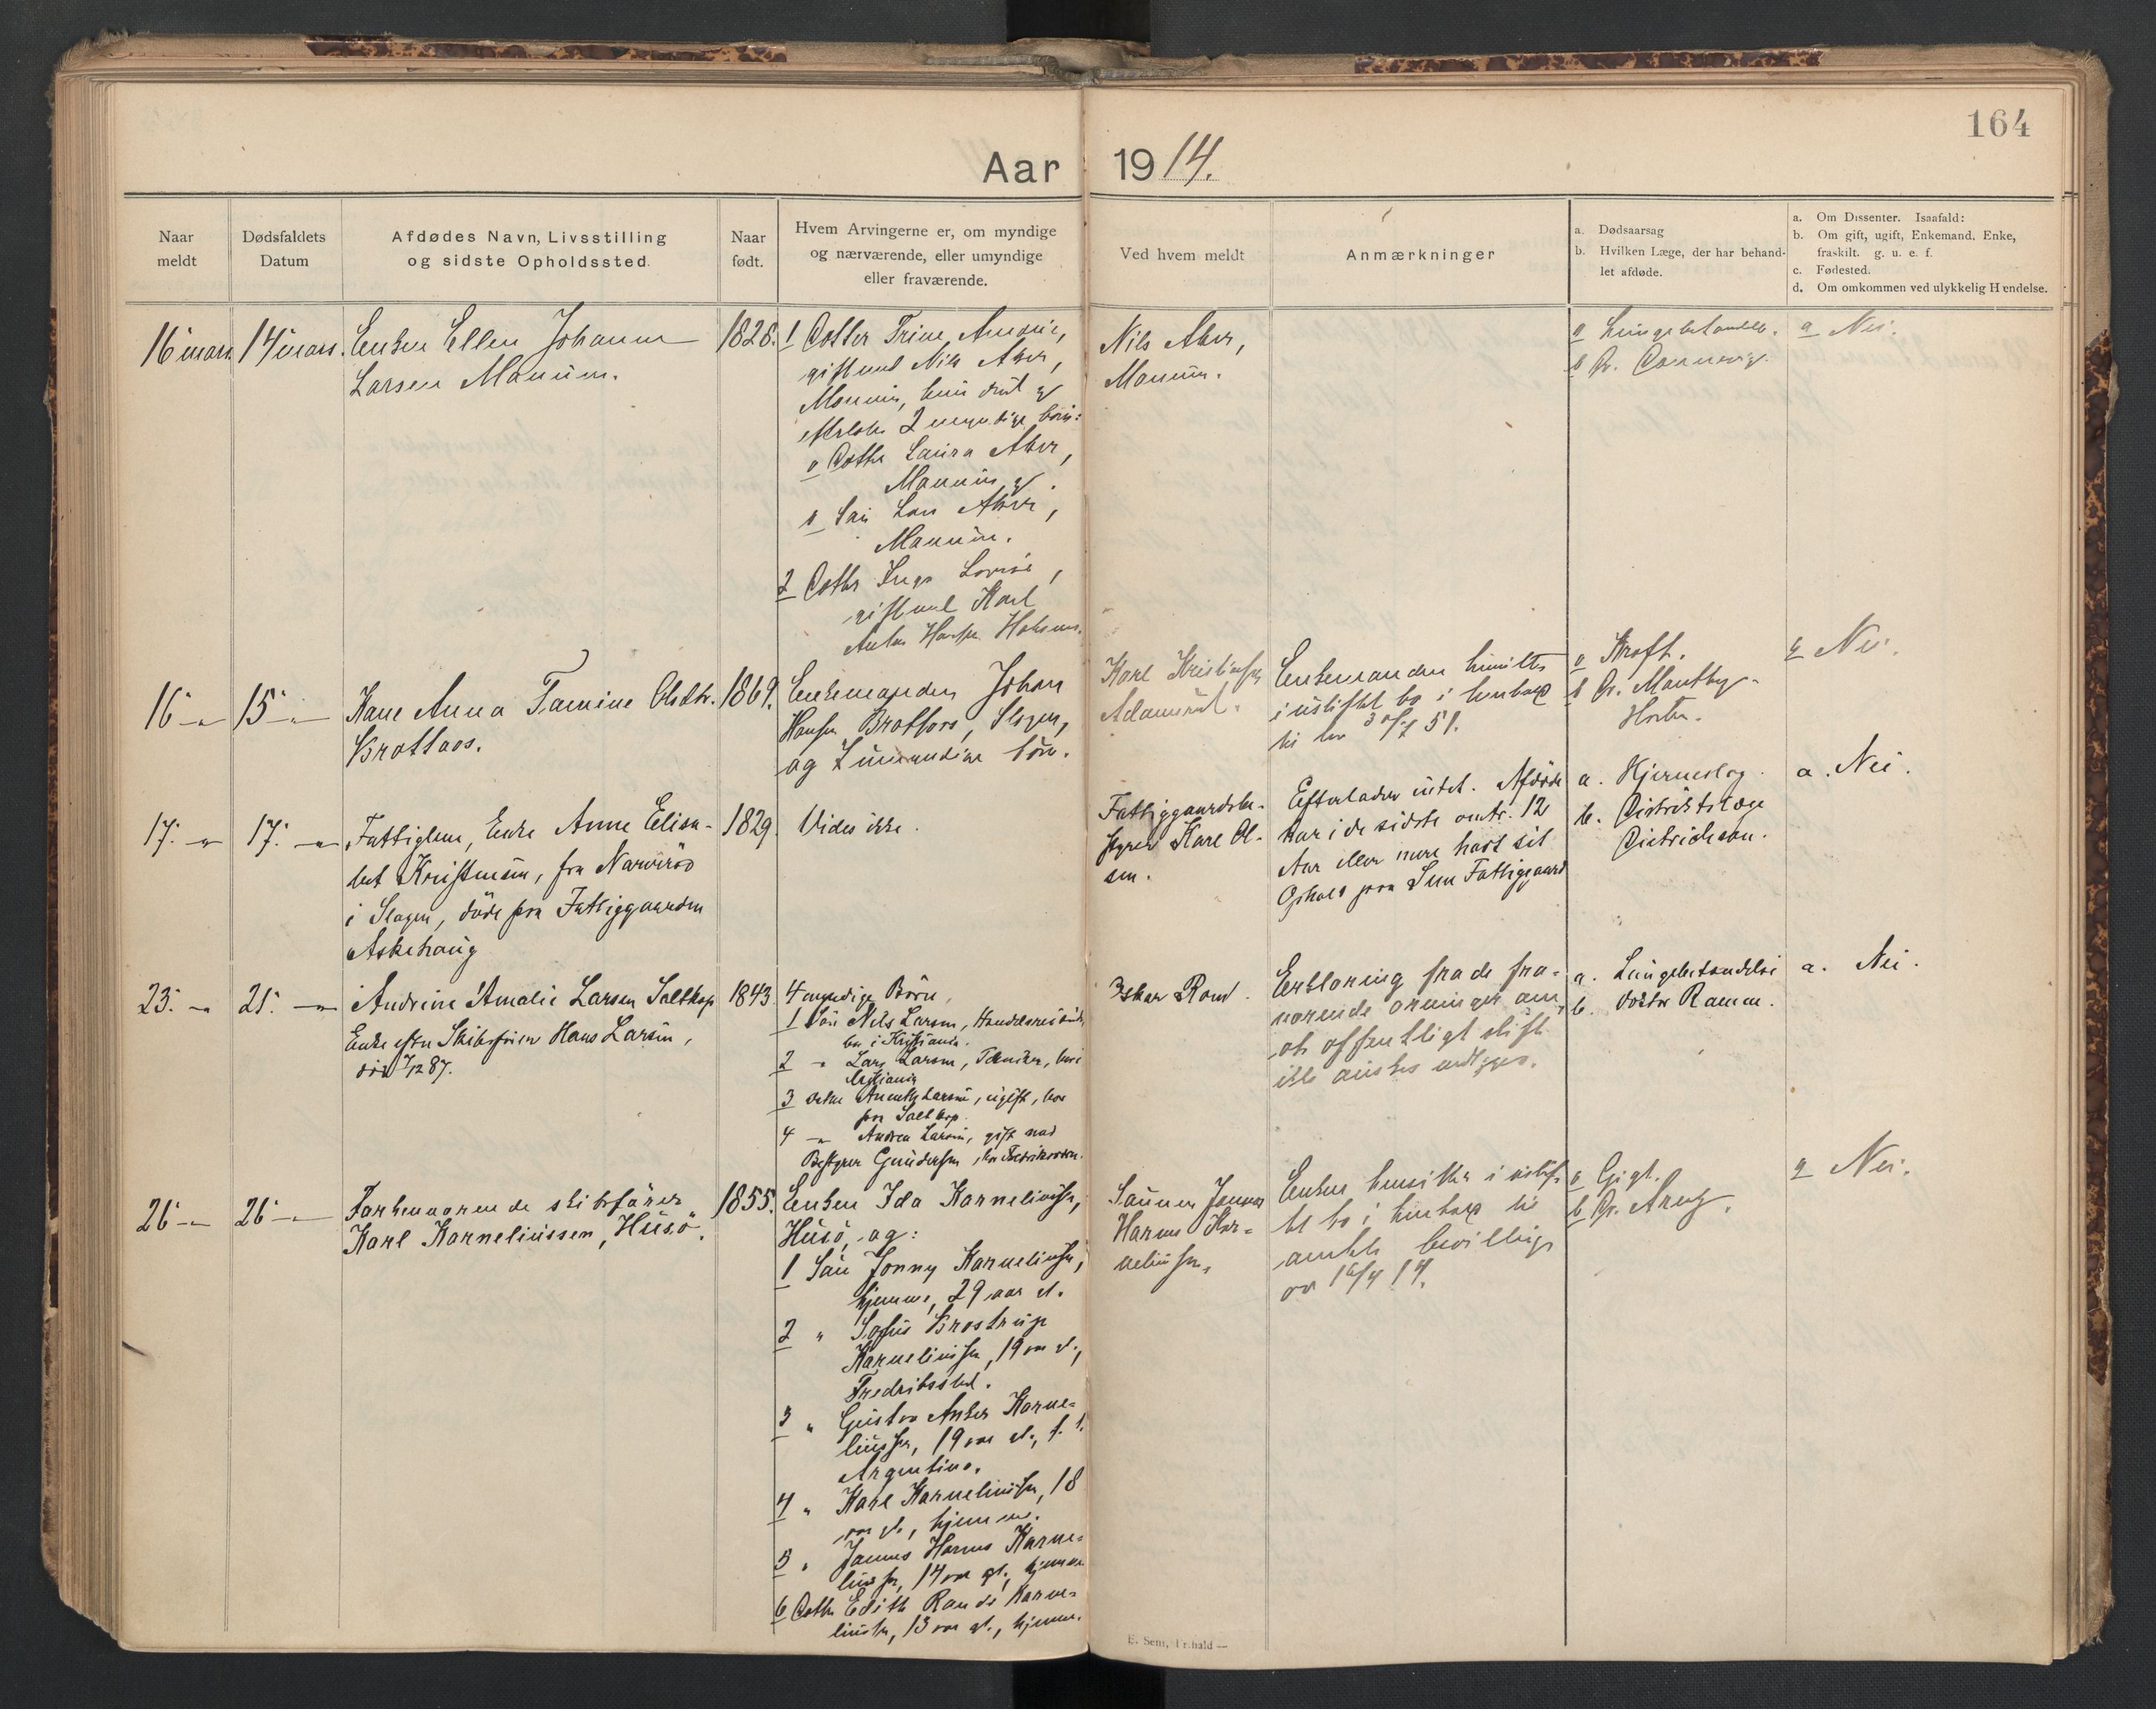 164
Aar 1914.
Naar meldt
Dødsfaldets Datum
Afdødes Navn, Livsstilling og sidste Opholdssted.
Naar født.
Hvem Arvingerne er, om myndige og nærværende, eller umyndige eller fraværende.
Ved hvem meldt
Anmærkninger
a. Dødsaarsag
b. Hvilken Læge, der har behandlet afdøde.
a. Om Dissenter. Isaafald:
b. Om gift, ugift, Enkemand, Enke, fraskilt. g. u. e. f.
c. Fødested.
d. Om omkommen ved ulykkelig Hændelse.
16 mars. 14 mars. Enken Ellen Johanne
Larsen Manum.
1828.
1 Datter Trine
gift med Nils Aker,
Manum, hun død og
efterlater 2 myndige børn:
a Datter Laura Aker,
Manum, og
b Søn Lars Aker,
Manum.
2 Datter Inga Lovise,
gift med Karl
Anton Hansen
Nils Aker,
Manum.
a Lungebetændelse.
b Dr.
a Nei.
16 - 15 - Kone Anna Tamine Olsdtr.
Brattaas.
1869.
Enkemanden Johan
Hansen Brataas, Slagen,
og 7 umyndige børn.
Karl Kristiansen
Adamsrød.
Enkemanden hensitter
i uskiftet bo i henhold
til lov 30/7 51.
a Kræft.
b Dr.
Horten.
a Nei.
17. - 17. - Fattiglem, Enke Anne Elisa-
bet Kristensen, fra Narverød
i Slagen, døde paa Fattiggaarden
Askehaug
1829.
Vides ikke.
Fattiggaardsbe-
styrer Karl Ol-
sen.
Efterlader intet. Afdøde
har i de sidste omtr. 12
Aar eller mere havt sit
Ophold paa Sem Fattiggaard
a. Hjerneslag.
b. Distriktslæge
Dietrichson.
a. Nei.
23. - 21. - Andrine Amalie Larsen Saltkop
Enke efter Skibsfører Hans Larsen,
død 1/12 87.
1843.
4 myndige Børn,
1 Søn Nils Larsen, Handelsreisende,
bor i Kristiania.
2 " Lars Larsen, Tekniker, bor i
Kristiania
3 Datter Larsen, ugift, bor
paa Saltkop.
4 - Andrea Larsen, gift med
Bestyrer Gundersen, bor
Oskar Rom.
Erklæring fra de fra-
værende arvinger om
at offentligt skifte
ikke ønskes
a. Lungebetændelse
b. Doktor Ramm.
a. Nei.
26 - 26 - Forhenværende skibsfører
Karl Karneliussen, Husø.
1855.
Enken Ida Karneliussen,
Husø, og:
1 Søn Jonny Karneliussen,
hjemme, 29 aar gl.
2 " Sofus Brostrup
Karneliussen, 19 aar gl.,
Fredrikstad.
3 " Gustav Anker Karne-
liussen, 19 aar gl., f. t.
Argentina.
4 " Karl Karneliussen, 18
aar gl., hjemme.
5 " Jannes Harms Karne-
liussen, 14 aar gl., hjemme.
6 Datter Edith Randi Karne-
liussen, 13 aar gl., hjemme.
Sønnen Jannes
Harms Kar-
neliussen.
Enken hensitter i uskif-
tet bo i henhold til
amtets bevilling
av 16/4 14.
a Gigt.
b Dr.
a Nei.
E. Sem, Fr.hald —